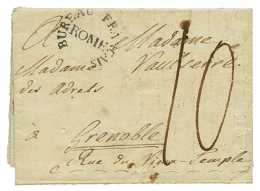 BUREAU FRANCAIS
ROME
A Madame
Madame Vaulserre
des adrets
à Grenoble
Rue du Vieux Temple
10